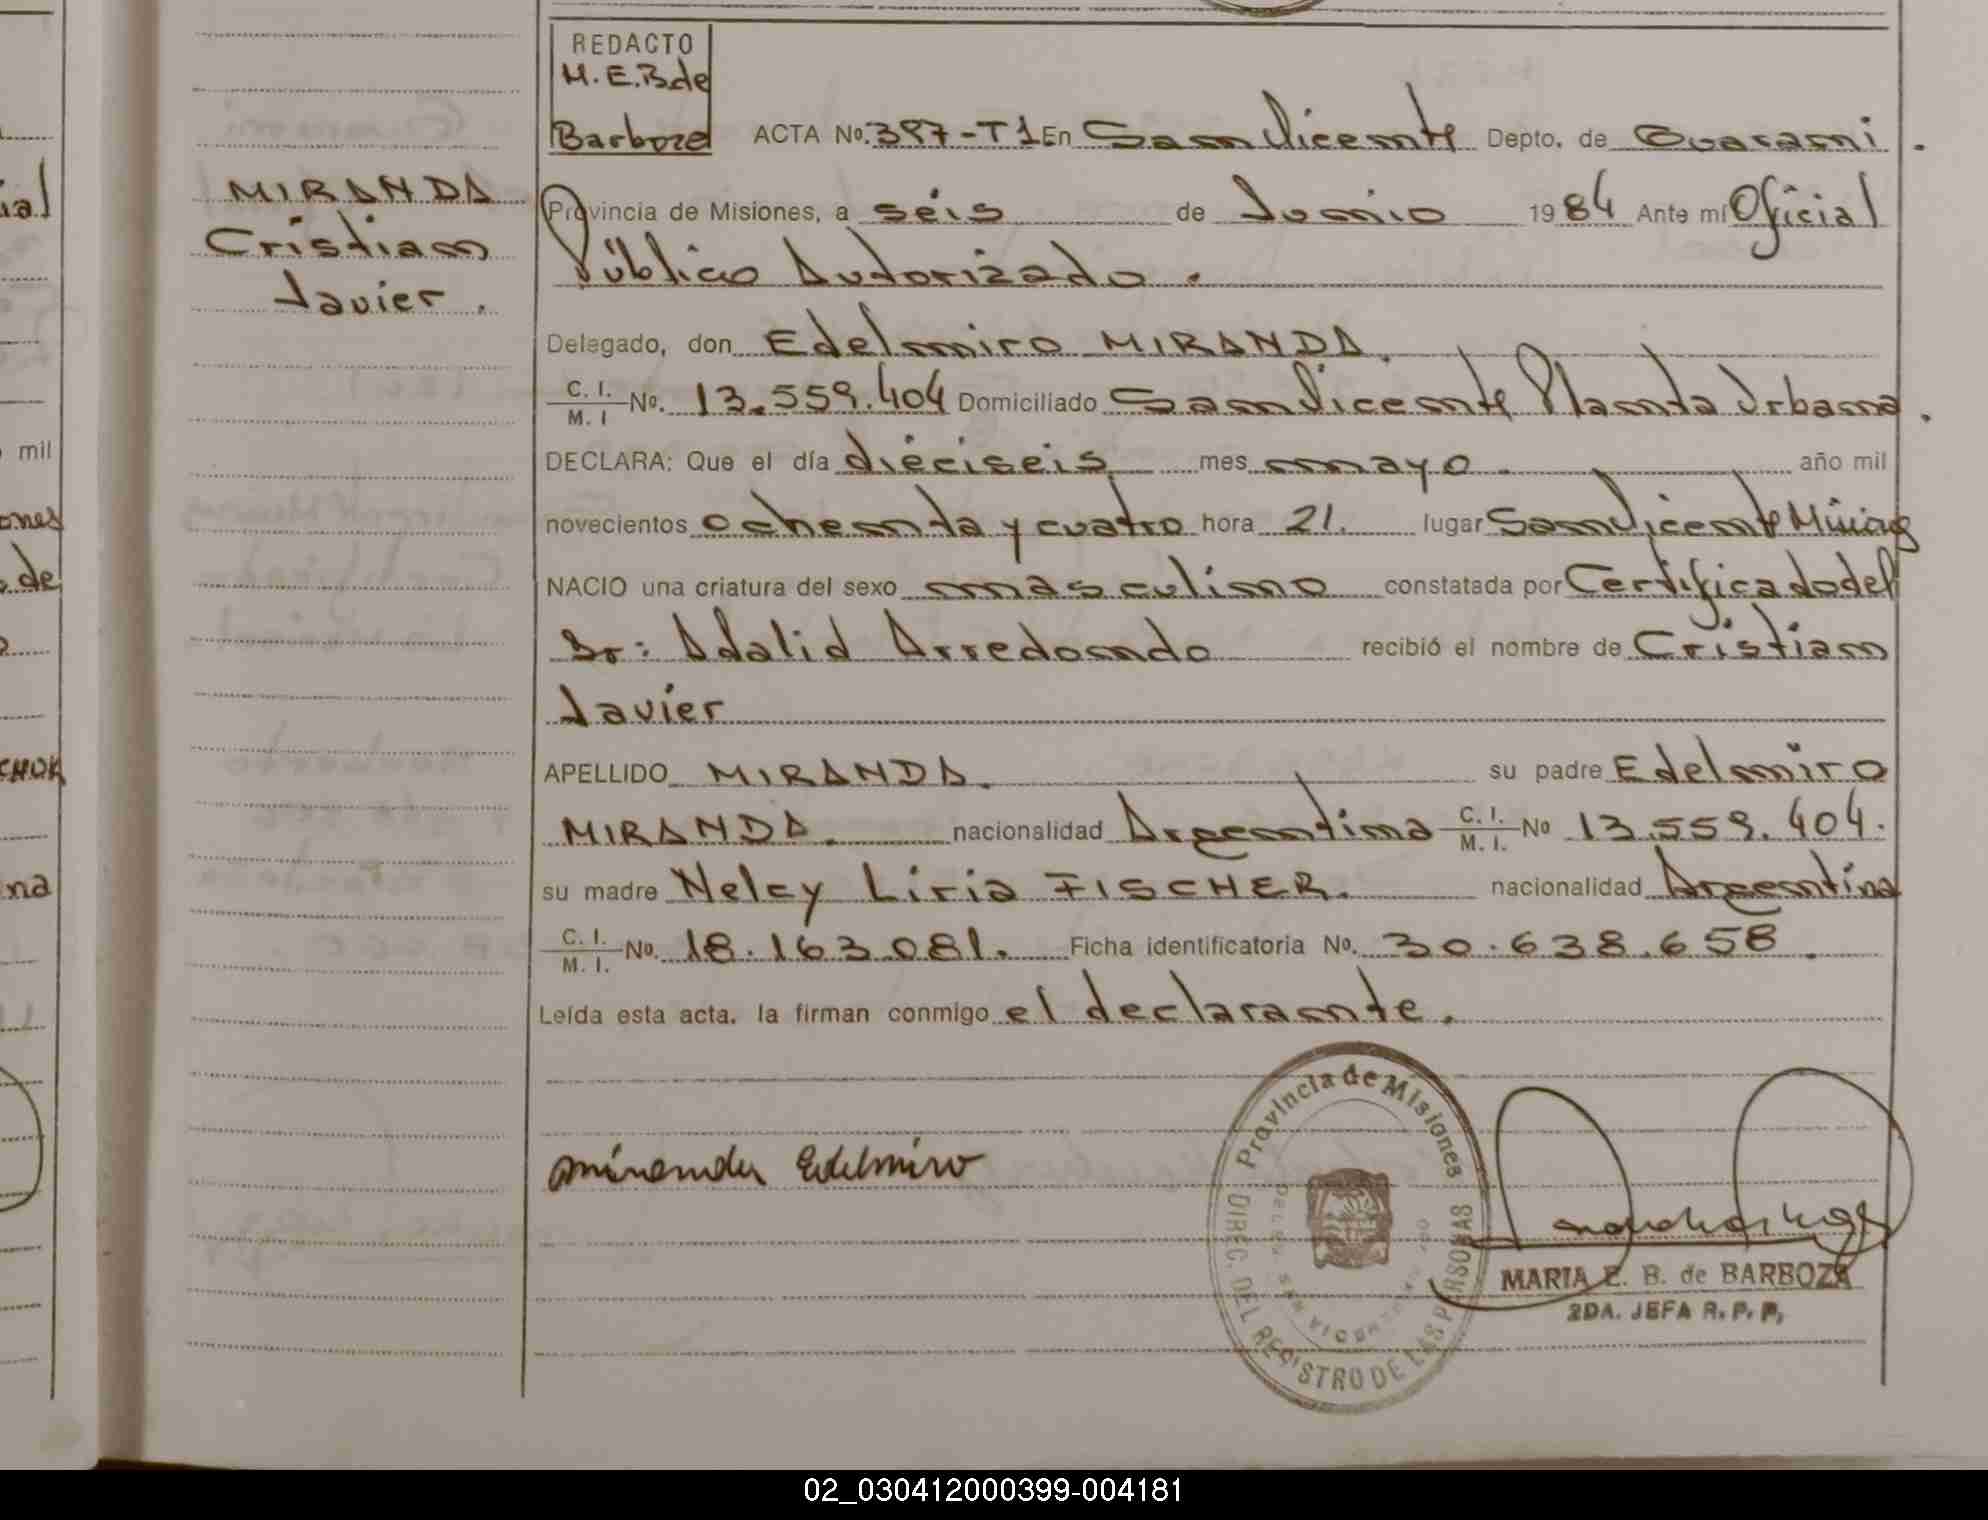 REDACTO
M.E.B de
Barboza
ACTA No. 397-T1 En San Vicente Depto. de Guarani.
MIRANDA
Cristian
Javier.
Provincia de Misiones, a séis de Junio 1984 Ante mí Oficial
Público Autorizado.
Delegado, don Edelmiro MIRANDA.
C. I. M. I No. 13.559.404 Domiciliado San Vicente Planta Urbana.
DECLARA: Que el día diéciseis mes mayo. año mil
novecientos ochenta y cuatro hora 21. lugar San Vicente
NACIO una criatura del sexo masculino constatada por Certificado del
Dr: Adalid Arredondo recibió el nombre de Cristian
Javier
APELLIDO MIRANDA. su padre Edelmiro
MIRANDA. nacionalidad Argentina C. I. M. I. No 13.559.404.
su madre Nelcy Liria FISCHER. nacionalidad Argentina
C. I. M. I. No. 18.163.081. Ficha identificatoria No. 30.638.658.
Leída esta acta. la firman conmigo el declarante.
Miranda Edelmiro
Provincia de Misiones
DIREC. DEL REGISTRO DE LAS PERSONAS
MARIA E. B. de BARBOZA
2DA. JEFA R. P. P.
ial
mil
ones
de
CHUK
na
02_030412000399-004181